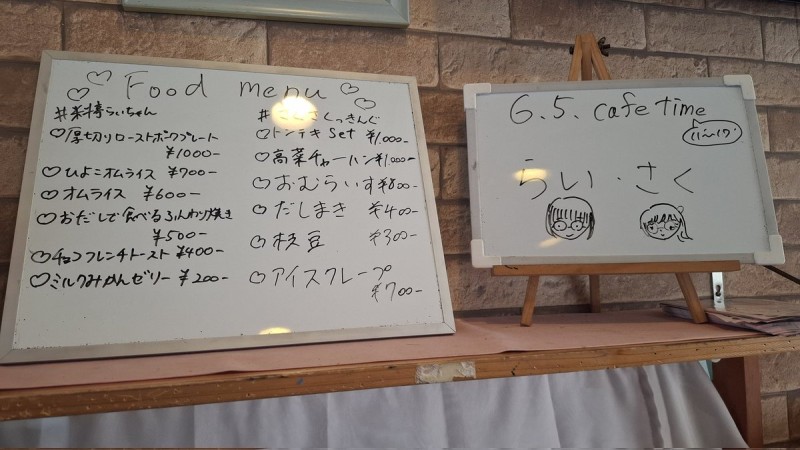 Food menu
#楽襟らいちゃん
♡厚切りローストポークプレート
¥1000-
♡ひよこオムライス ¥700-
♡オムライス ¥600-
♡おだしで食べるふんわり焼き
¥500-
♡チョコフレンチトースト ¥400-
♡ミルクみかんゼリー ¥200-
#さくさくっきんぐ
♡トンテキSet ¥1,000-
♡高菜チャーハン ¥1,000-
♡おむらいす ¥800-
♡だしまき ¥400-
♡枝豆 ¥300-
♡アイスクレープ
¥700-
6.5. cafe time
11~17
らい・さく